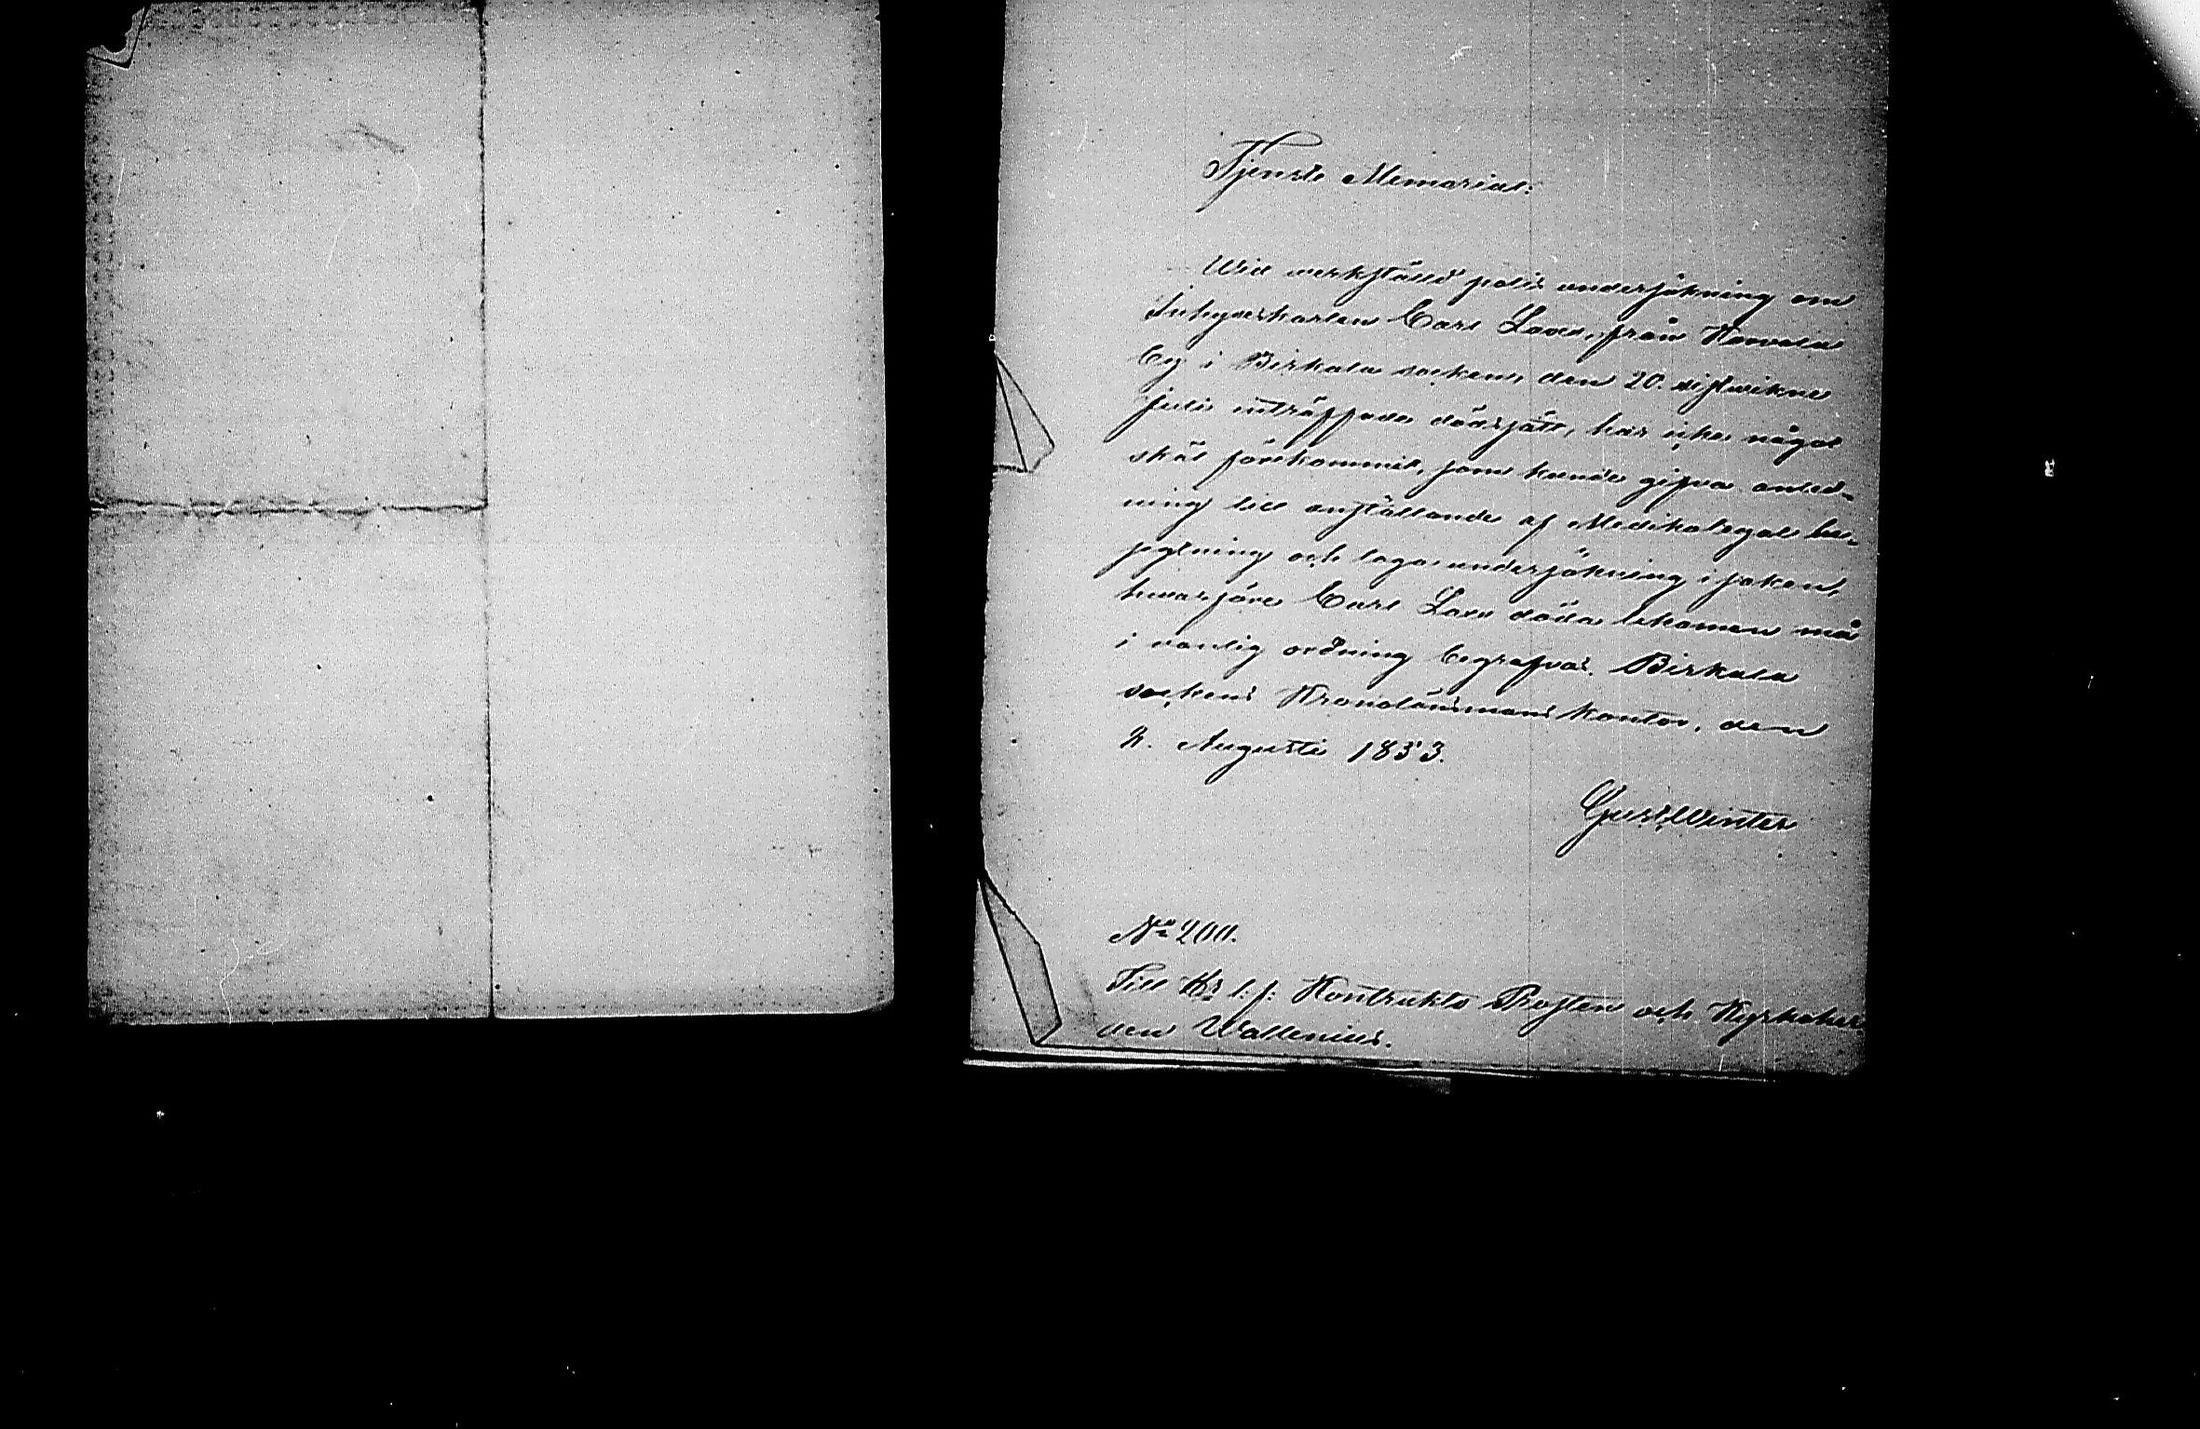 Tjenste Memorial:
Wid werkstäld polis undersökning om
Inhyseskarlen Carl Laxen, från Korvola
by i Birkala socken, den 20. sistwikne
Julii inträffade dödssätt, har icke något
skäl förekommit, som kunde gifva anled-
ning till anställande af Medikolegal be-
sigtning och laga undersökning i saken,
hwarföre Carl Laxen döda lekamen må
i vanlig ordning begrafvas. Birkala
sockens Kronolänsmans kontor, den
2. Augusti 1853.
Gust Winter
No 200.
Till Hr t.f. Kontrakts Prosten och Kyrkoher
den Wallenius.